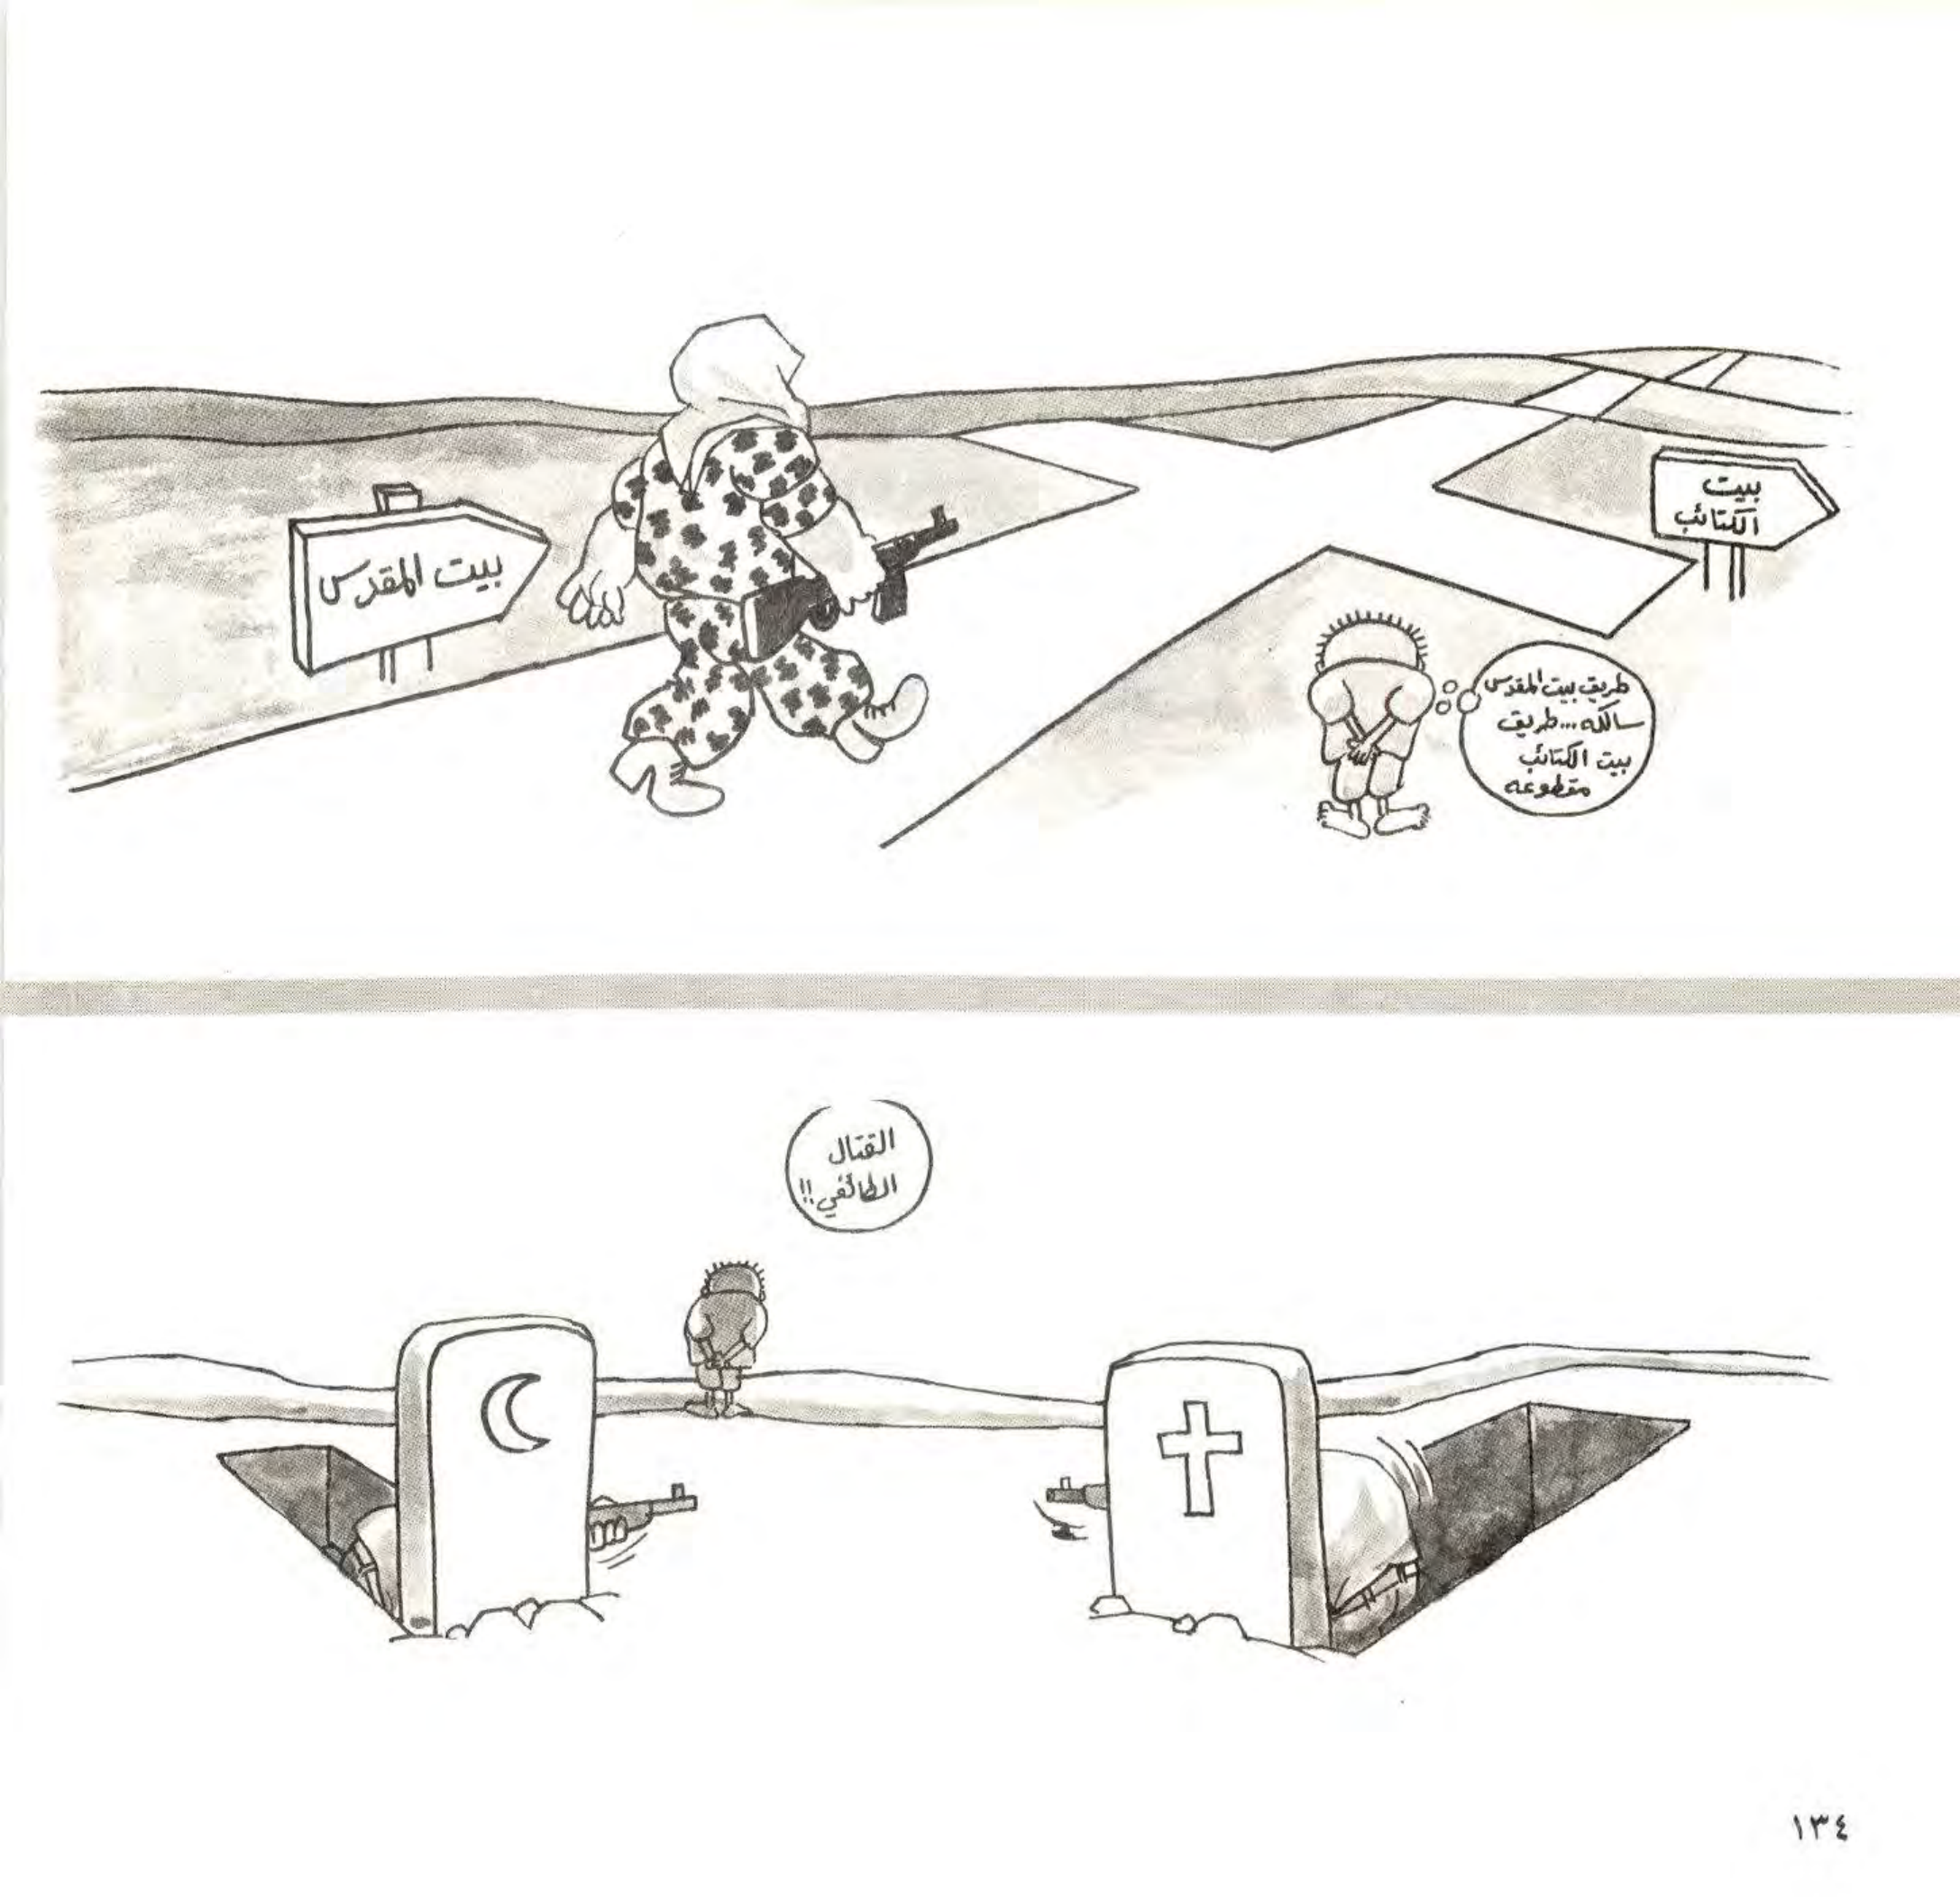 بيت
الكتائب
بيت المقدس
طريق بيت المقدس
سالكه... طريق
بيت الكتائب
مقطوعه
القتال
الطائفي!!
١٣٤